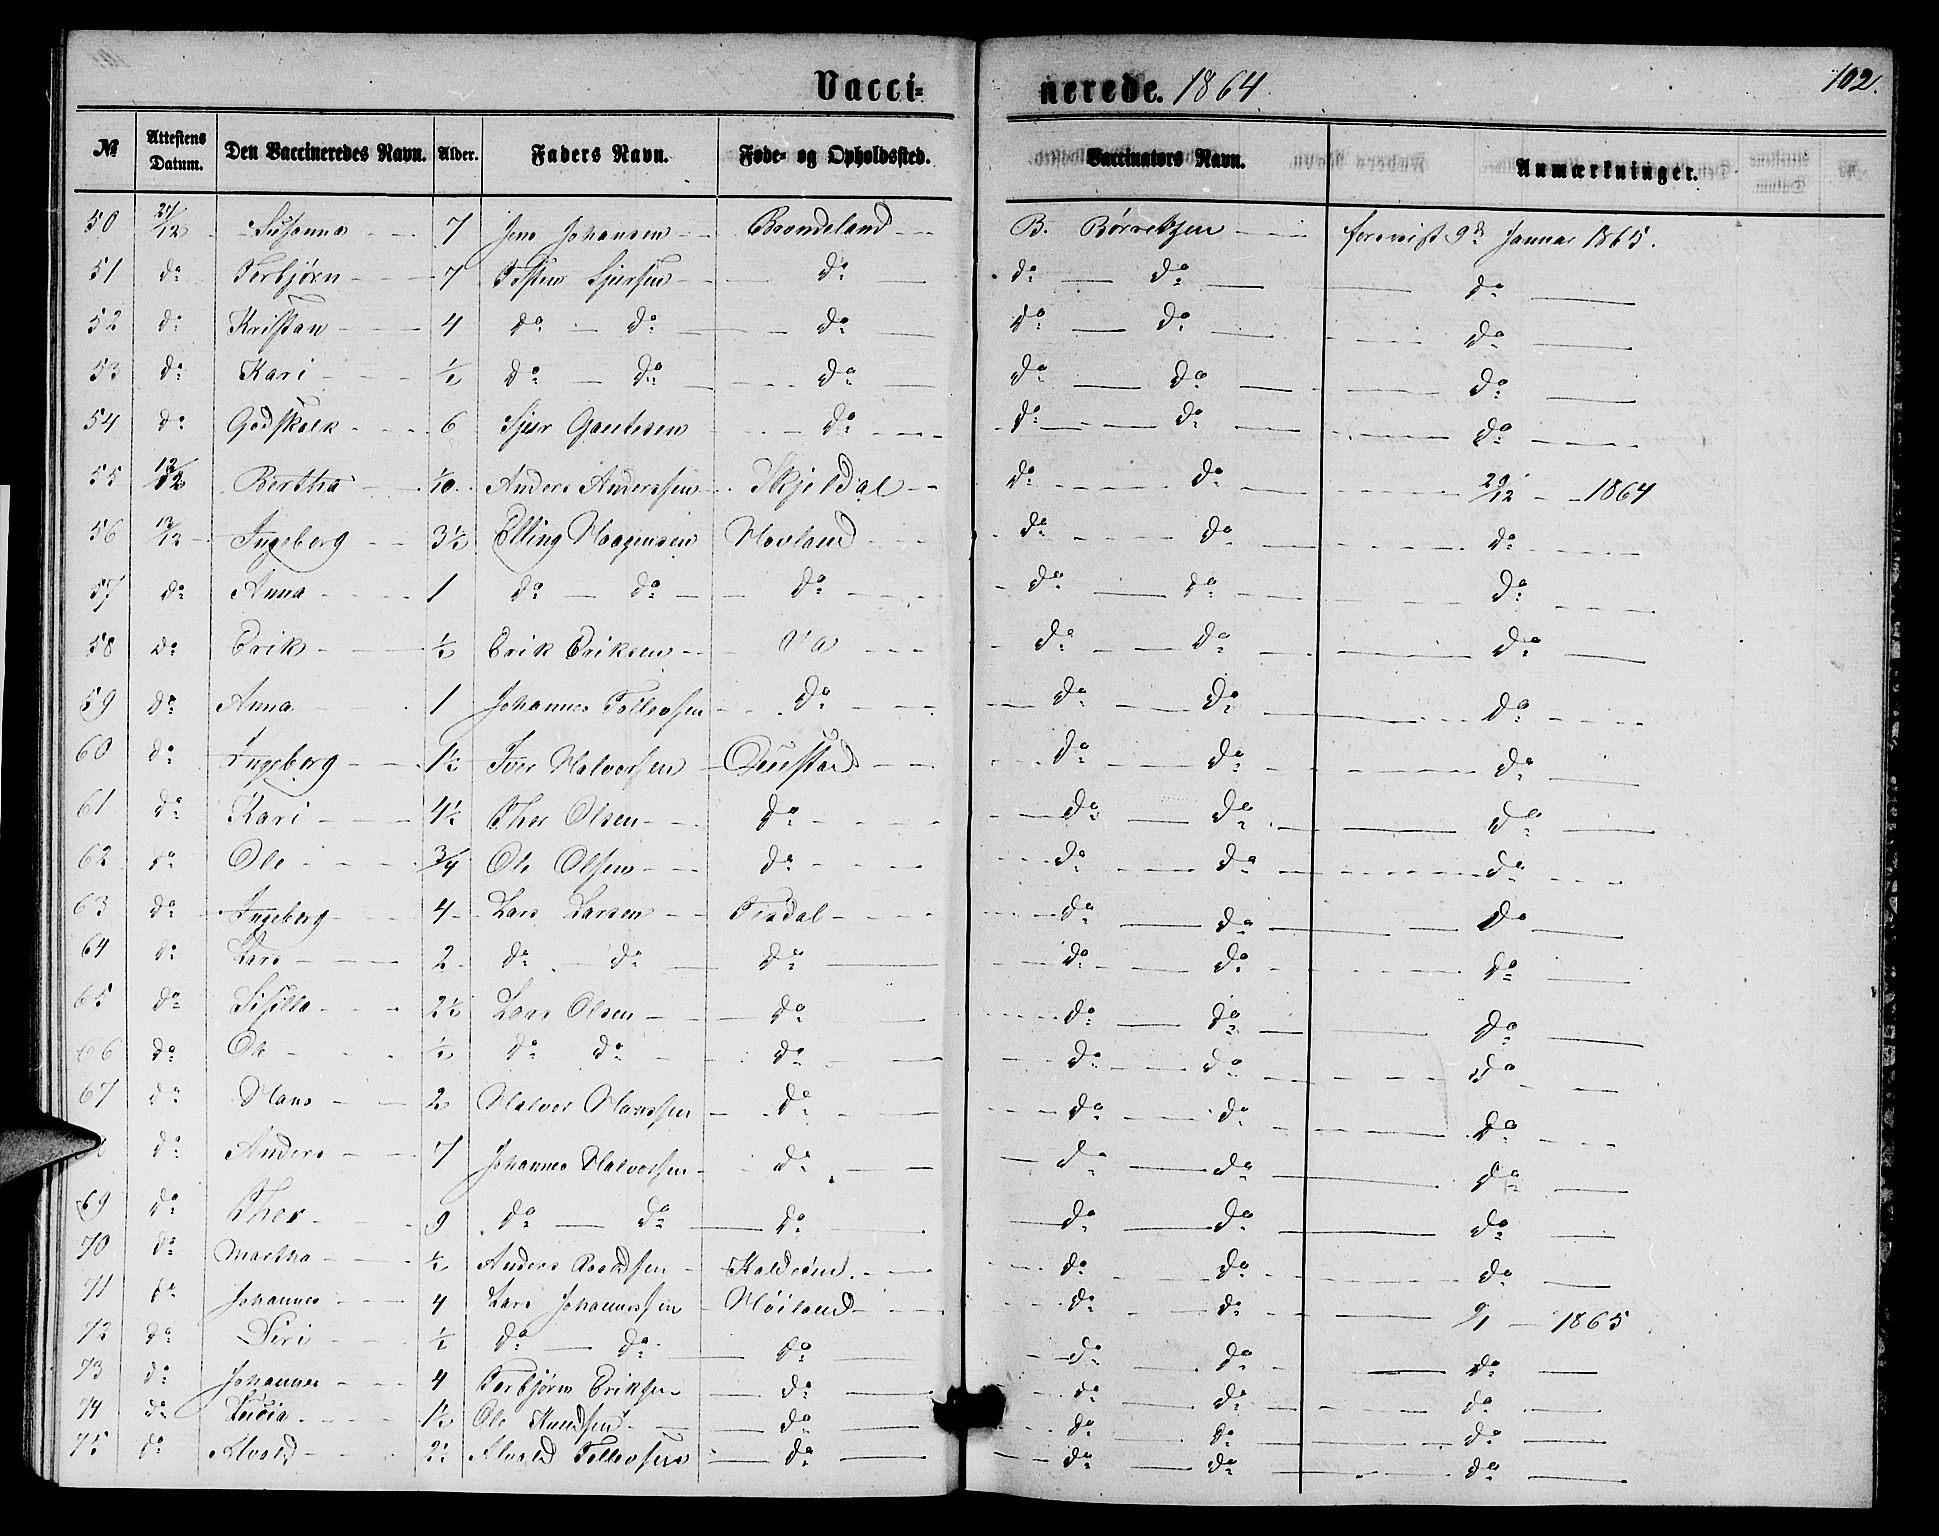 Vacci=nerede. 1864 102.
№ Attestens Datum. Den Vaccineredes Navn. Alder. Faders Navn. Føde- og Opholdssted. Vaccinators Navn. Anmærkninger.
50 21/12 Susanna 7 Jens Johansen B. Børretzen forevist 9d Januar 1865.
51 do Torbjørn 7 do do do do
52 do Kristan 4 do do do do do do
53 do Kari 1/2 do do do do do do
54 do Godskalk 6 Sjur Gautesen do do do do
55 Bertha 1/10 Anders Anderssen Skjeldal do do 29/12 1864
56 13/12 Ingeborg 3½ Elling Haagensen Hovland do do do
57 do Anna 1 do do do do do do
58 do Erik ½ Erik Eriksen Va do do do
59 do Anna 1 Johannes Tollevsen do do do do
60 do Ingeborg 1½ Iver Halvorsen do do do
61 do Kari 4½ Thor Olsen do do do do
62 do Ole 3/4 Ole Olsen do do do do
63 do Ingeborg 4 Lars Larsen Tisdal do do do
64 do Lars 2 do do do do do do
65 do Sisilla 2½ Lars Olsen do do do do
66 do Ole ½ do do do do do do
67 do Hans 2 Halvor Hanssen do do do do
do Anders 7 Johannes Halvorsen do do do do
69 do Thor 9 do do do do do do
70 do Martha ½ Anders do do do
71 do Johannes 4 Lars Johannessen Høiland do do 9/1 1865
72 do Siri ½ do do do do do do
73 do Johannes 4 Torbjørn Eriksen do do do do
74 do 1½ Ole Knudsen do do do do
75 do Alvald 2 Alvald Tollevsen do do do do